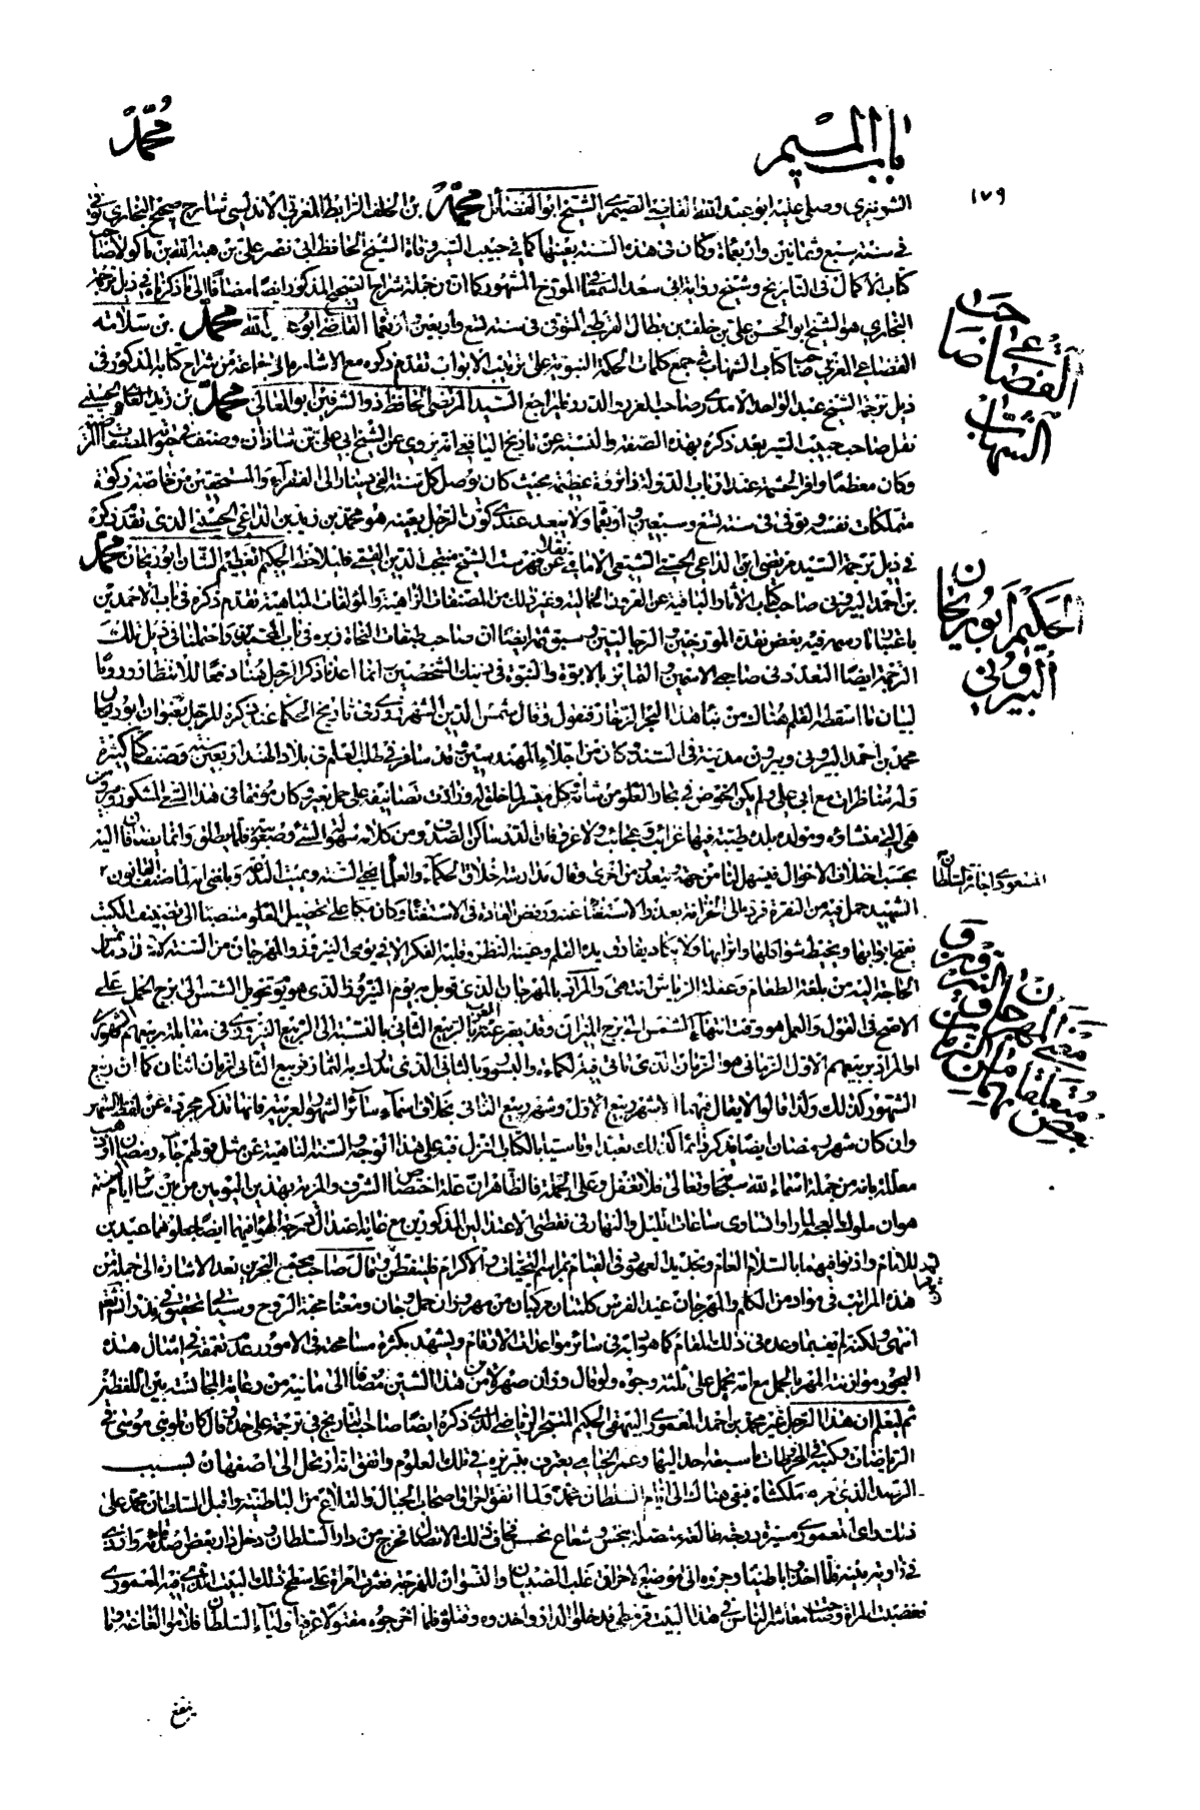 باب الميم
محمد
١٧٩
الشونيزي وصلى عليه ابو عبد الله القاضي الصيمري الشيخ ابو الفضائل محمد بن الخلف المرابط المغربي الاندلسي شارح صحيح البخاري توفي
في سنة سبع وثمانين واربعمائة وكان في هذه السنة بعينها كما في حبيب السير وفاة الشيخ الحافظ ابي نصر علي بن هبة الله بن ماكولا صاحب
كتاب الاكمال في التاريخ وشيخ رواية ابي سعد السمعاني المورخ المشهور كما ان من جملة شراح الصحيح المذكور ايضا مضافا الى ما ذكرناه في ذيل ترجمة
البخاري هو الشيخ ابو الحسن علي بن خلف بن بطال القرطبي المتوفى في سنة تسع واربعين واربعمائة القاضي ابو عبد الله محمد بن سلامة
القضاعي المغربي صاحب كتاب الشهاب في جمع كلمات الحكمة النبوية على ترتيب الابواب تقدم ذكره مع الاشارة الى جماعة من شراح كتابه المذكور في
ذيل ترجمة الشيخ عبد الواحد الامدي صاحب الغرر والدرر فليراجع السيد المرتضى الحافظ ذو الشرفين ابو المعالي محمد بن زيد العلوي الحسيني
نقل صاحب حبيب السير بعد ذكره بهذه الصفة والنسبة عن تاريخ اليافعي انه يروي عن الشيخ ابي علي بن شاذان وصنف في
وكان معظما وافر الحشمة عند ارباب الدولة ذا ثروة عظيمة بحيث كان يوصل كل سنة الفي دينار الى الفقراء والمستحقين من خاصة زكوة
متملكات نفسه وتوفي في سنة تسع وسبعين واربعمائة ولا يبعد عندي كون الرجل بعينه هو محمد بن زيد بن الداعي الحسيني الذي تقدم ذكره
في ذيل ترجمة السيد مرتضى ابن الداعي الحسني الشيعي الامامي نقلا عن فهرست الشيخ منتجب الدين القمي فليلاحظ الحكيم العظيم الشان ابو ريحان محمد
بن احمد البيروني صاحب كتاب الاثار الباقية عن القرون الخالية وغير ذلك من المصنفات الزاهية والمؤلفات المباهية تقدم ذكره في باب الاحمدين
باعتبار تسمية فيه بعض نقدة المورخين والرجاليين وسبق ثمة ايضا ان صاحب طبقات النحاة زبره في باب المحمدين واحتملنا في ذيل تلك
الترجمة ايضا التعدد في صاحبي الاسمين
لبيان ما اسقطه القلم هناك من نبأ هذا البحر الزخار فنقول وقال شمس الدين الشهرزوري في تاريخ الحكماء عند ذكره للرجل بعنوان ابو ريحان
محمد بن احمد البيروني وبيرون مدينة في السند كان من اجلاء المهندسين وقد سافر في طلب العلم في بلاد الهند اربعين سنة وصنف كتبا كثيرة
وله مناظرات مع ابي علي ولم يكن الخوض في بحار العلوم من شانه وكل ميسر لما خلق له وزادت تصانيفه على حمل بعير وكان موفقا في هذا السعي المشكور وبيرون
هي التي منشاؤه ومولده بلدة طيبة فيها غرائب وعجائب ولا غرو فان الدر ساكن الصدف ومن كلامه سهولة الشيء وصعوبته قلما يطلق وانما يضافان اليه
بحسب اختلاف الاحوال فيسهل اما من جهة ويبعد من اخرى وقال مدارسة اخلاق الحكماء والعلماء تحيي السنة وتميت البدعة وبلغني انه لما صنف القانون
الشهيد حمل فيه من النقرة فرده الى الخزانة بعذر الاستغناء عنه ورفض العادة في الاستغناء وكان مكبا على تحصيل العلوم منصبا الى تصنيف الكتب
يفتح ابوابها ويحيط شواكلها واقرابها ولا يكاد يفارق يده القلم وعينه النظر وقلبه الفكر الا في يومي النيروز والمهرجان من السنة لاعداد ما تمس
الحاجة اليه من بلغة الطعام وعلقة الرياش انتهى والمراد بالمهرجان الذي قوبل به يوم النيروز الذي هو يوم تحويل الشمس الى برج الحمل على
الاصح في القول والعمل هو وقت انتهاء الشمس الى برج الميزان وقد يعبر عنه بالربيع الثاني بالنسبة الى الربيع النيروزي في مقابلة ربيعهم الشهوري
او المراد بربيعهم الاول الزماني هو الزمان الذي تاتي فيه الكماة والنور والثاني الذي تدرك به الثمار فربيع الثاني لزمان اثنان كما ان ربيع
الشهور كذلك ولذا قالوا لا يقال فيهما الا شهر ربيع الاول وشهر ربيع الثاني بخلاف اسماء سائر الشهور العربية فانها تذكر مجردة عن لفظة الشهر
وان كان شهر رمضان ايضا يذكر دائما كذلك تعبدا وتاسيا بالكتاب المنزل فيه على هذا الوجه والسنة الناهية عن مثل قولهم جاء رمضان
معللة بانه من جملة اسماء الله سبحانه وتعالى فلا تغفل وعلى الجملة فالظاهر ان علة اختصاص الشرف والمزية بهذين اليومين من بين سائر ايام السنة
هو ان ملوك العجم لما راوا تساوي ساعات الليل والنهار في نقطتي الاعتدالين المذكورين مع غاية اعتدال درجة الهواء فيهما ايضا جعلوهما عيدين
للانام واذنوا فيهما بالسلام العام وتجديد العهود في القيام بمراسم التحيات والاكرام فليتفطن وقال صاحب مجمع البحرين بعد الاشارة الى جملة من
هذه المراتب في مواد من الكلم والمهرجان عيد الفرس كلمتان مركبتان من مهر وزان حمل وجان ومعناها محبة الروح وسياتي تحقيقه في قدر
انتهى ولكنه لم يف بما وعد في ذلك المقام كما هو دابه في سائر مواعدات الارقام ويشهد بكثرة مسامحته في الامور وعدم تعمقه في امثال هذه
البحور موازنته المهر بالحمل مع انه يحمل على ثلثة وجوه ولو قال وزان صهر لامن هذا الشين مضافا الى ما فيه من رعاية المجانسة بين اللفظين
ثم ليعلم ان هذا الرجل غير محمد بن احمد المعموري البيهقي الحكيم المتبحر الرياضي الذي ذكره ايضا صاحب التاريخ في ترجمة على حدة وقال كان
الرياضيات وكتبه في المخروطات ما سبقه احد اليها وعمر الخيام يعترف بتبريزه في تلك العلوم واتفق انه ارتحل الى اصفهان لسبب
الرصد الذي امر به ملكشاه فبقي هناك الى ايام السلطان محمد فلما اتفق احراق اصحاب الجبال والقلاع من الباطنية واقبل السلطان محمد على
ذلك راى المعموري مسيرة درجة طالعة متصلة بنحس وشعاع نحس فخاف ذلك الاتصال فخرج من دار السلطان ودخل دار بعض اصدقائه وانزوى
في زاوية بيته فلما اخذوا باطنيا وجروه الى موضع الاحراق غلب الصبيان والنسوان للفرجة فعثرت امراة على سطح ذلك البيت الذي فيه المعموري
فغضبت المراة وصاحت معاشر الناس في هذا البيت قرمطي فدخلوا الدار واخذوه وقتلوه فلما اخرجوه مقتولا عرفه اولياء السلطان فلاموا الغاغة
القضاعي صاحب
الشهاب
الحكيم ابو ريحان
البيروني
المسعودي اجازة السلطان
النيروز
والمهرجان